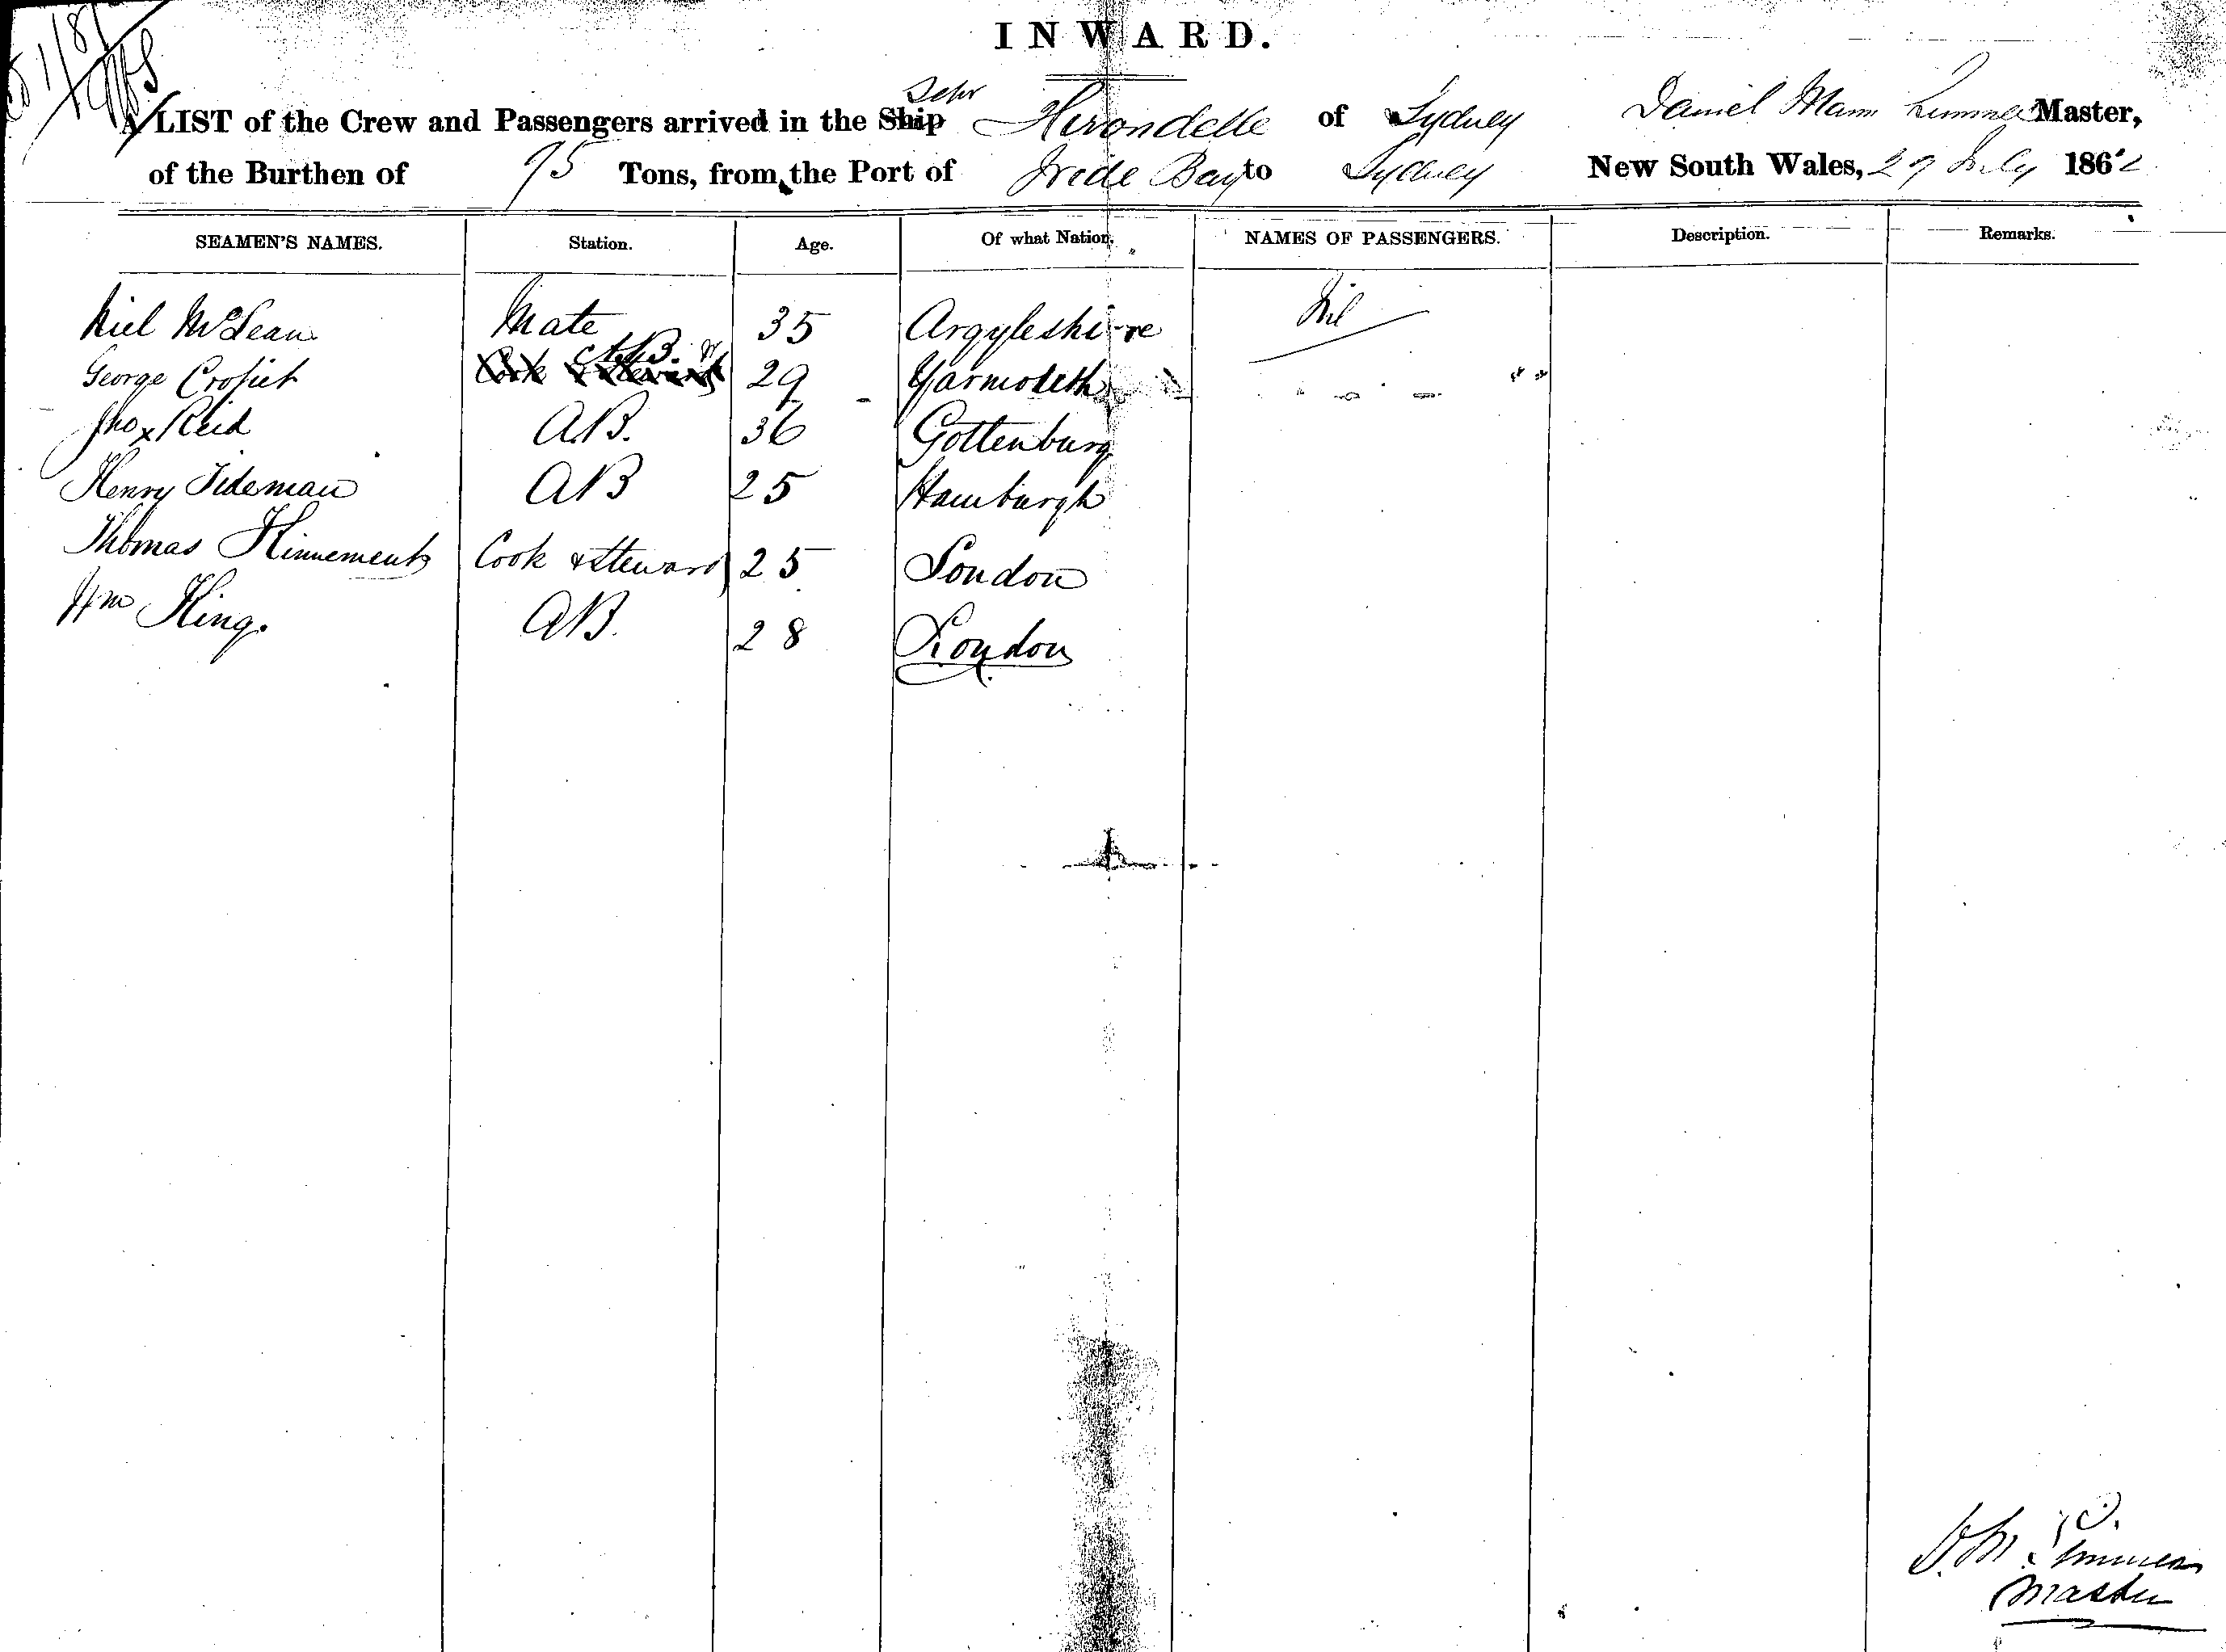 INWARD.
A LIST of the Crew and Passengers arrived in the Ship Schr Hirondelle of Sydney Daniel Mann Master,
of the Burthen of 95 Tons, from the Port of Wide Bay to Sydney New South Wales, 29 July 1862
SEAMEN'S NAMES. Station. Age. Of what Nation. NAMES OF PASSENGERS. Description. Remarks.
Niel McLean Mate 35 Argyleshire Nil
George Cook & Steward A.B. 29 Yarmouth
Jno x Reid A.B. 36 Gottenburg
Henry Tideman AB 25 Hamburgh
Thomas Cook & Steward 25 London
Wm King. AB. 28 London
Master